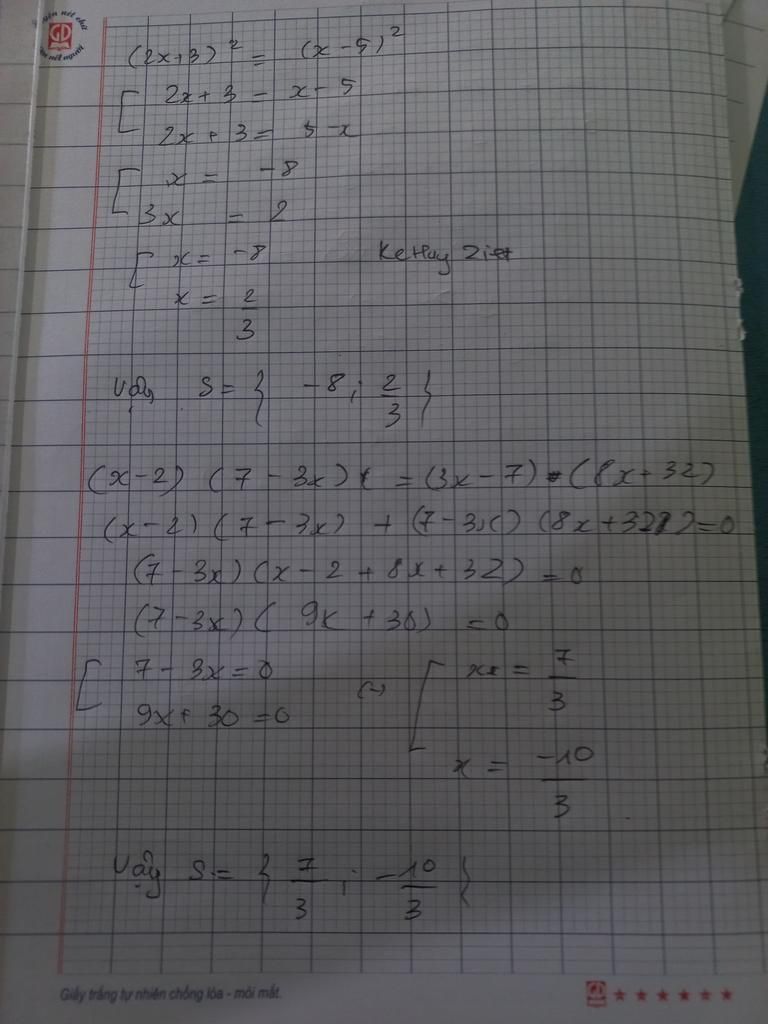 nét chữ
GD
nết người
(2x+3)² = (x-5)²
[ 2x+3 = x-5
2x+3 = 5-x
[ x = -8
3x = 2
[ x = -8
x = 2/3
Vậy S = { -8 ; 2/3 }
(x-2) (7-3x) = (3x-7) (8x+32)
(x-2) (7-3x) + (7-3x) (8x+32) = 0
(7-3x) (x-2+8x+32) = 0
(7-3x) (9x+30) = 0
[ 7-3x=0
9x+30=0
(-) [ x = 7/3
x = -10/3
Vậy S = { 7/3 ; -10/3 }
Giấy trắng tự nhiên chống lóa - mỏi mắt.